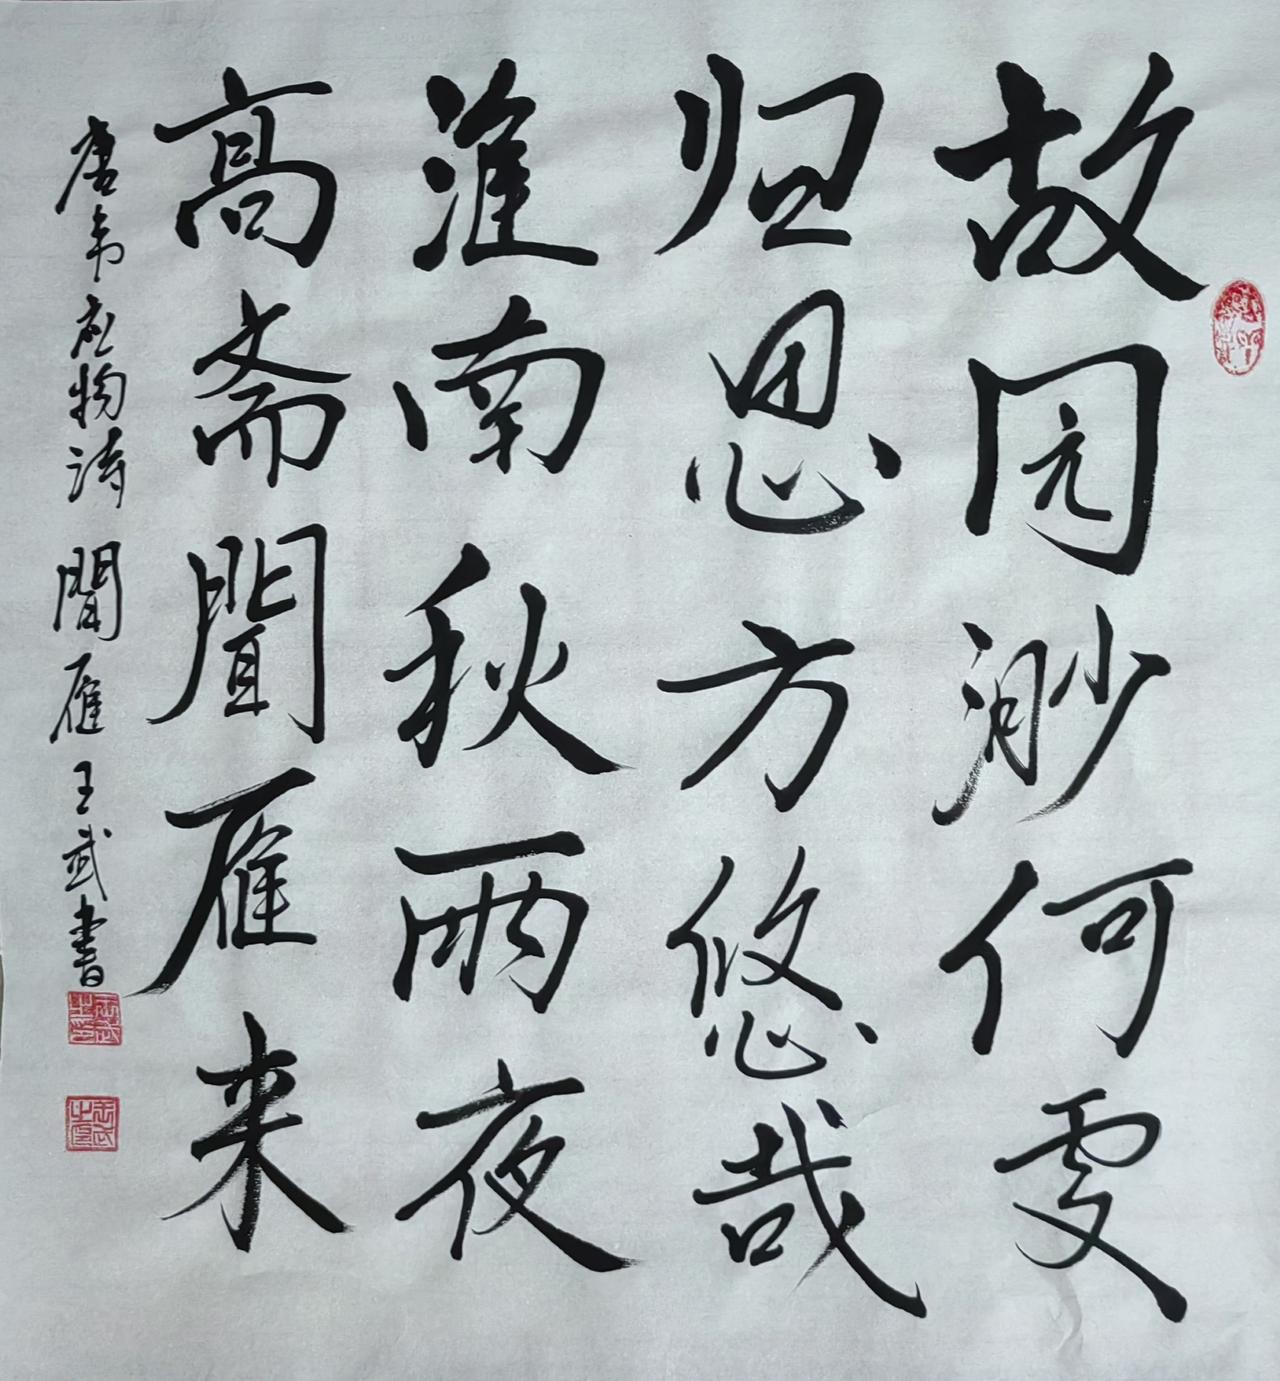 故园渺何处
归思方悠哉
淮南秋雨夜
高斋聞雁来
唐韦应物诗 聞雁 王武書